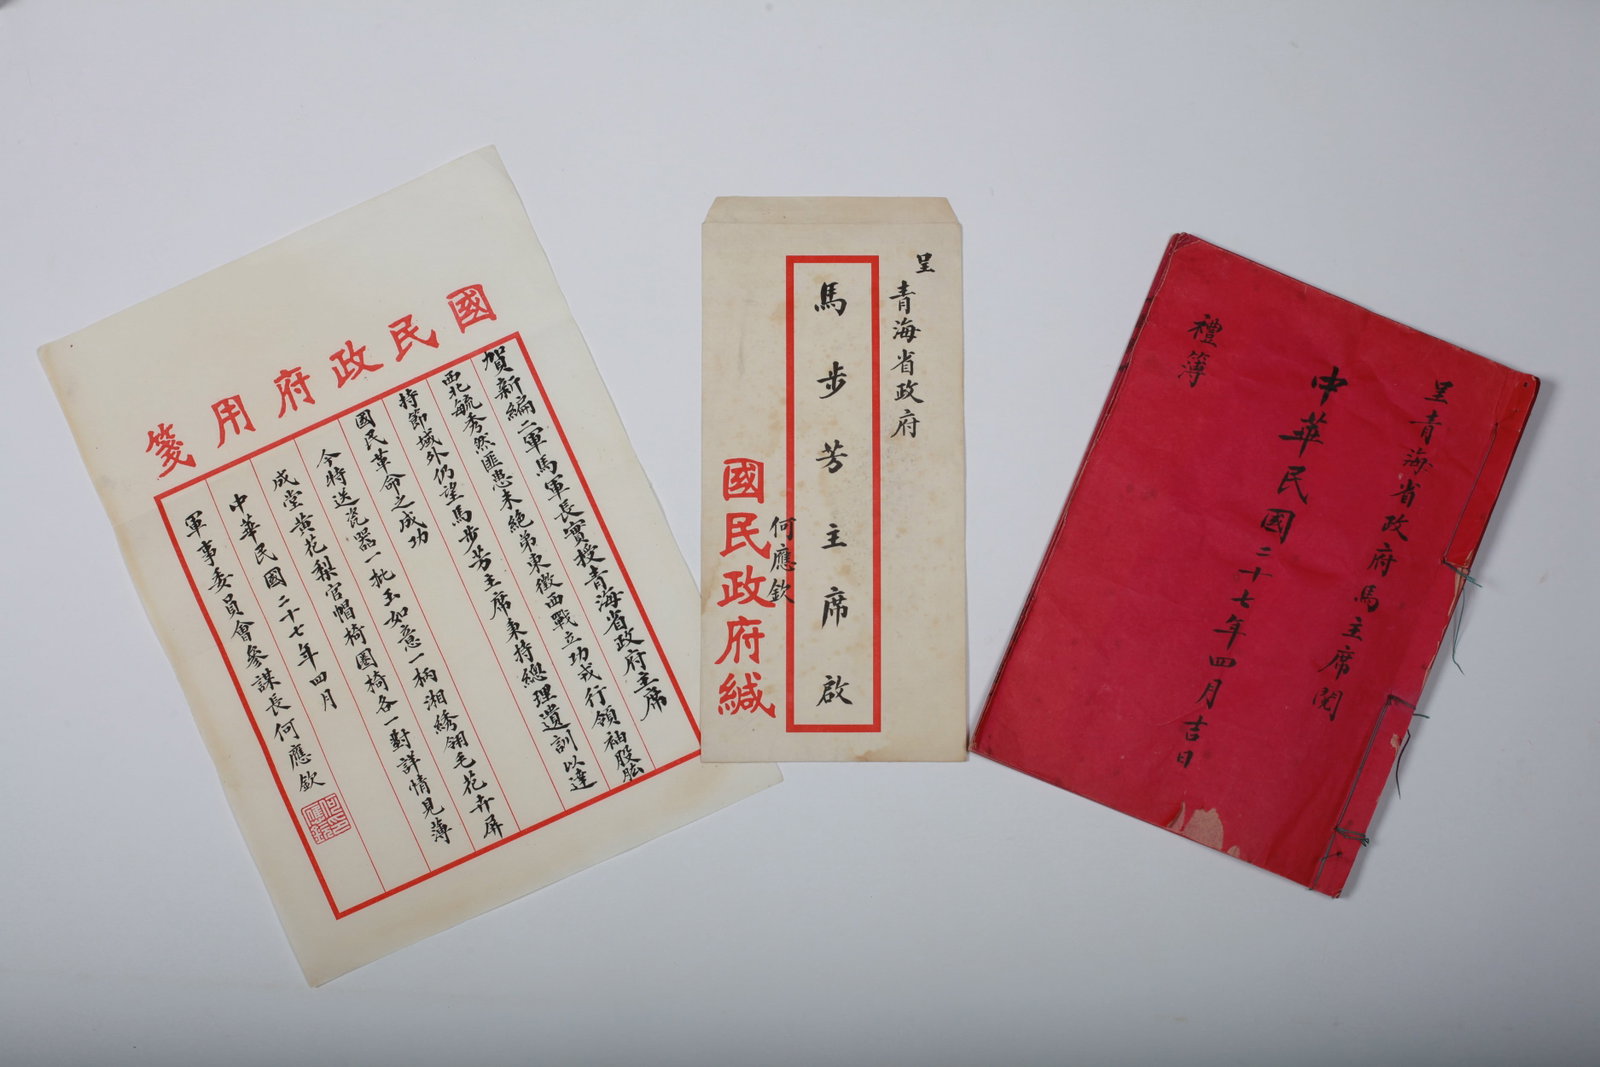 國民政府用箋
賀新編二軍馬軍長實授青海省政府主席
西北毓秀然匪患未絕弟東徵西戰立功戎行領袖股肱
持節域外仍望馬步芳主席秉持總理遺訓以達
國民革命之成功
今特送瓷器一批玉如意一柄湘綉翎毛花卉屏
成堂黄花梨官帽椅圈椅各一對詳情見薄
中華民國二十七年四月
軍事委員會參謀長何應欽
呈
青海省政府
馬步芳主席啟
何應欽
國民政府緘
呈青海省政府馬主席閱
中華民國二十七年四月吉日
禮簿